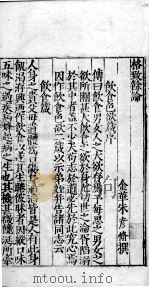 格致餘論
金華朱彥修撰
飲食色欲箴序
傳曰飲食男女人之大欲存焉予每思之男女之
欲所關甚大飲食之欲於身尤切世之淪胥陷溺
於其中者蓋不少矣苟志於道必先於此究心焉
因作飲食色欲二箴以示弟姪并告諸同志云
飲食箴
人身之貴父母遺體為口傷身滔滔皆是人有此身
飢渴洊興乃作飲食以遂其生睠彼昧者因縱口味
五味之過疾病蜂起病之生也其機甚微饞涎所牽